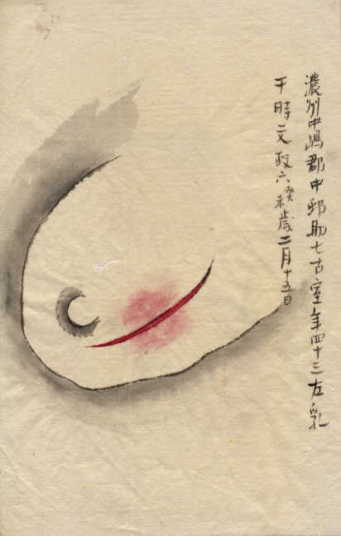 濃州中嶋郡中邨助七古室年四十三左乳
于時文政六癸未歳二月十五日